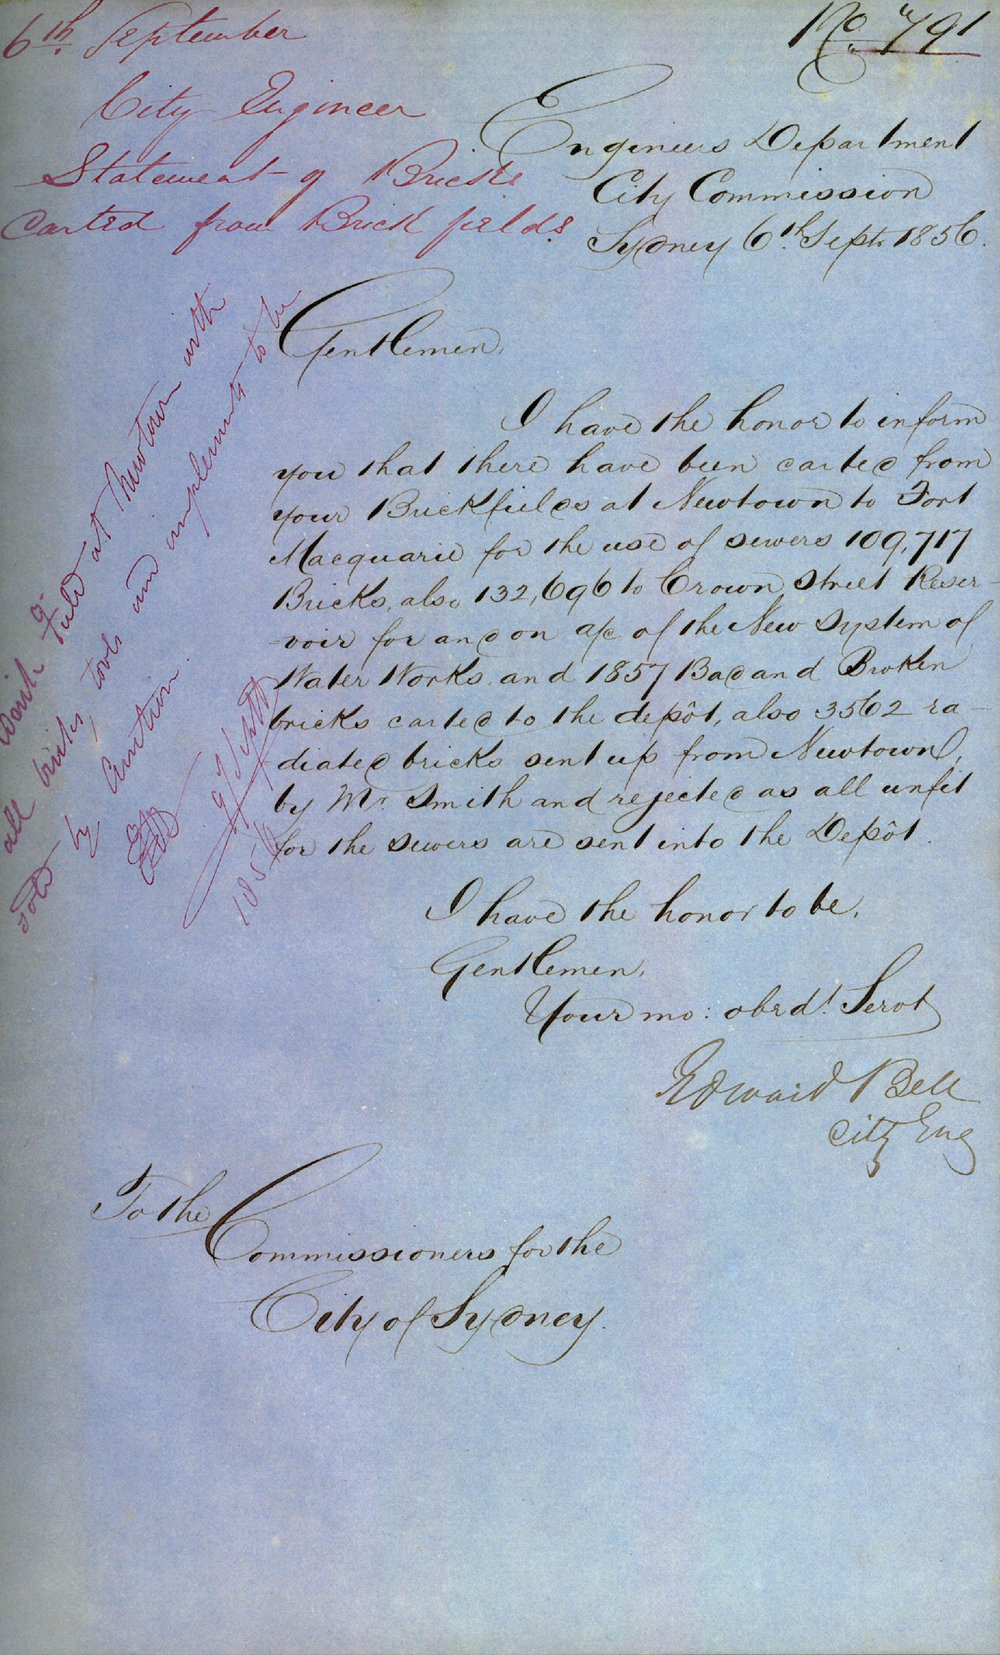 No. 791
6th. September
City Engineer
Statement of Bricks
carted from Brick fields.
Engineers Department
City Commission
Sydney 6th. Sept. 1856.
Gentlemen,
I have the honor to inform
you that there have been carted from
your Brickfields at Newtown to Fort
Macquarie for the use of sewers 109,717
Bricks, also 132,696 to Crown Street Reser-
voir for and on a/c of the New System of
Water Works, and 1857 Bad and Broken
bricks carted to the depôt, also 3562 ra-
diated bricks sent up from Newtown,
by Mr. Smith and rejected as all unfit
for the sewers are sent into the Depôt.
I have the honor to be,
Gentlemen,
Your mo: obedt. Servt
Edward Bell
City Eng
To the
Commissioners for the
City of Sydney.
Field at Newtown with
all bricks, tools and implements to be
sold by Auction
9/Sept
1856